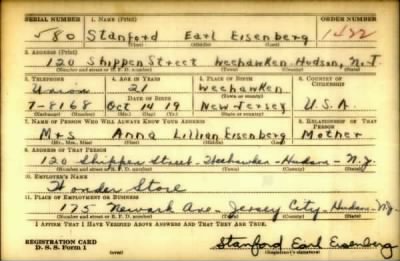 SERIAL NUMBER 1. NAME (Print) ORDER NUMBER
580 Stanford Earl Eisenberg 1422
(First) (Middle) (Last)
2. ADDRESS (Print)
120 Shippen Street Weehawken Hudson, N.J.
(Number and street or R. F. D. number) (Town) (County) (State)
3. TELEPHONE 4. AGE IN YEARS 5. PLACE OF BIRTH 6. COUNTRY OF CITIZENSHIP
Union 21 Weehawken
DATE OF BIRTH (Town or county)
7-8168 Oct 14 19 New Jersey U.S.A.
(Exchange) (Number) (Mo.) (Day) (Yr.) (State or country)
7. NAME OF PERSON WHO WILL ALWAYS KNOW YOUR ADDRESS 8. RELATIONSHIP OF THAT PERSON
Mrs Anna Lillian Eisenberg Mother
(Mr., Mrs., Miss) (First) (Middle) (Last)
9. ADDRESS OF THAT PERSON
120 Shippen Street - Weehawken - Hudson - N.J.
(Number and street or R. F. D. number) (Town) (County) (State)
10. EMPLOYER'S NAME
Wonder Store
11. PLACE OF EMPLOYMENT OR BUSINESS
175 Newark Ave - Jersey City - Hudson - N.J.
(Number and street or R. F. D. number) (Town) (County) (State)
I AFFIRM THAT I HAVE VERIFIED ABOVE ANSWERS AND THAT THEY ARE TRUE.
REGISTRATION CARD
D. S. S. Form 1 (over) Stanford Earl Eisenberg
(Registrant's signature)